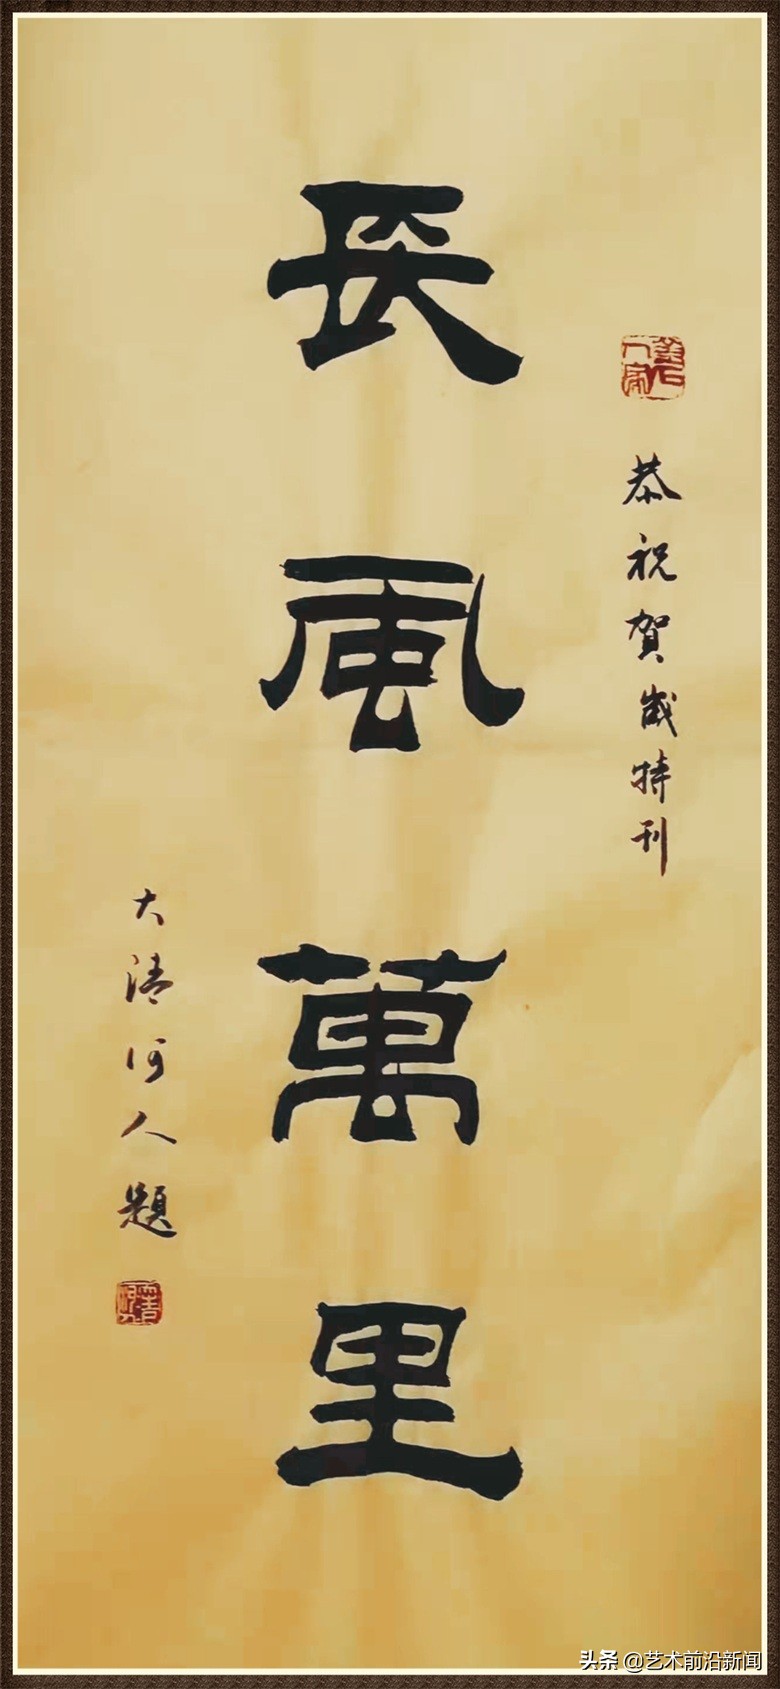 恭祝賀歲特刊
長風萬里
大清河人題
头条 @艺术前沿新闻